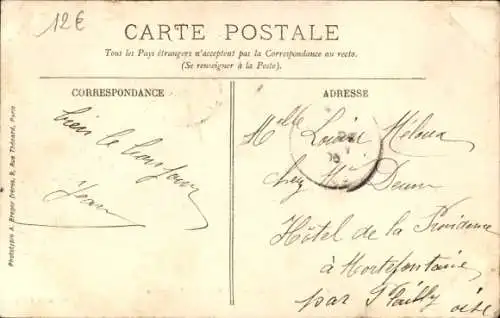 12€
CARTE POSTALE
Tous les Pays étrangers n'acceptent pas la Correspondance au recto.
(Se renseigner à la Poste).
CORRESPONDANCE
bien le bonjour
Jean
ADRESSE
Melle Louise
chez Mr
Hôtel de la Providence
à Mortefontaine
par
oise
Phototypie A. Breger frères, 9, Rue Thénard, Paris